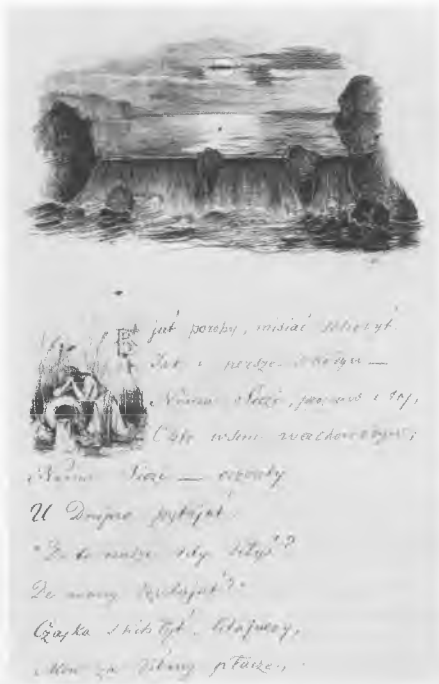 jut' porohy, misiać schodyt'
Jak i persze schodyw —
Nema Siczi, propaw i toj,
Chto wsim werchowodyw;
Nema Siczi — oczerety
U Dnipra pytajut':
"De to naszi dity dilyś?
De wony hulajut'?"
Czajka skihlyt' litajuczy,
Mow za ditmy płacze,